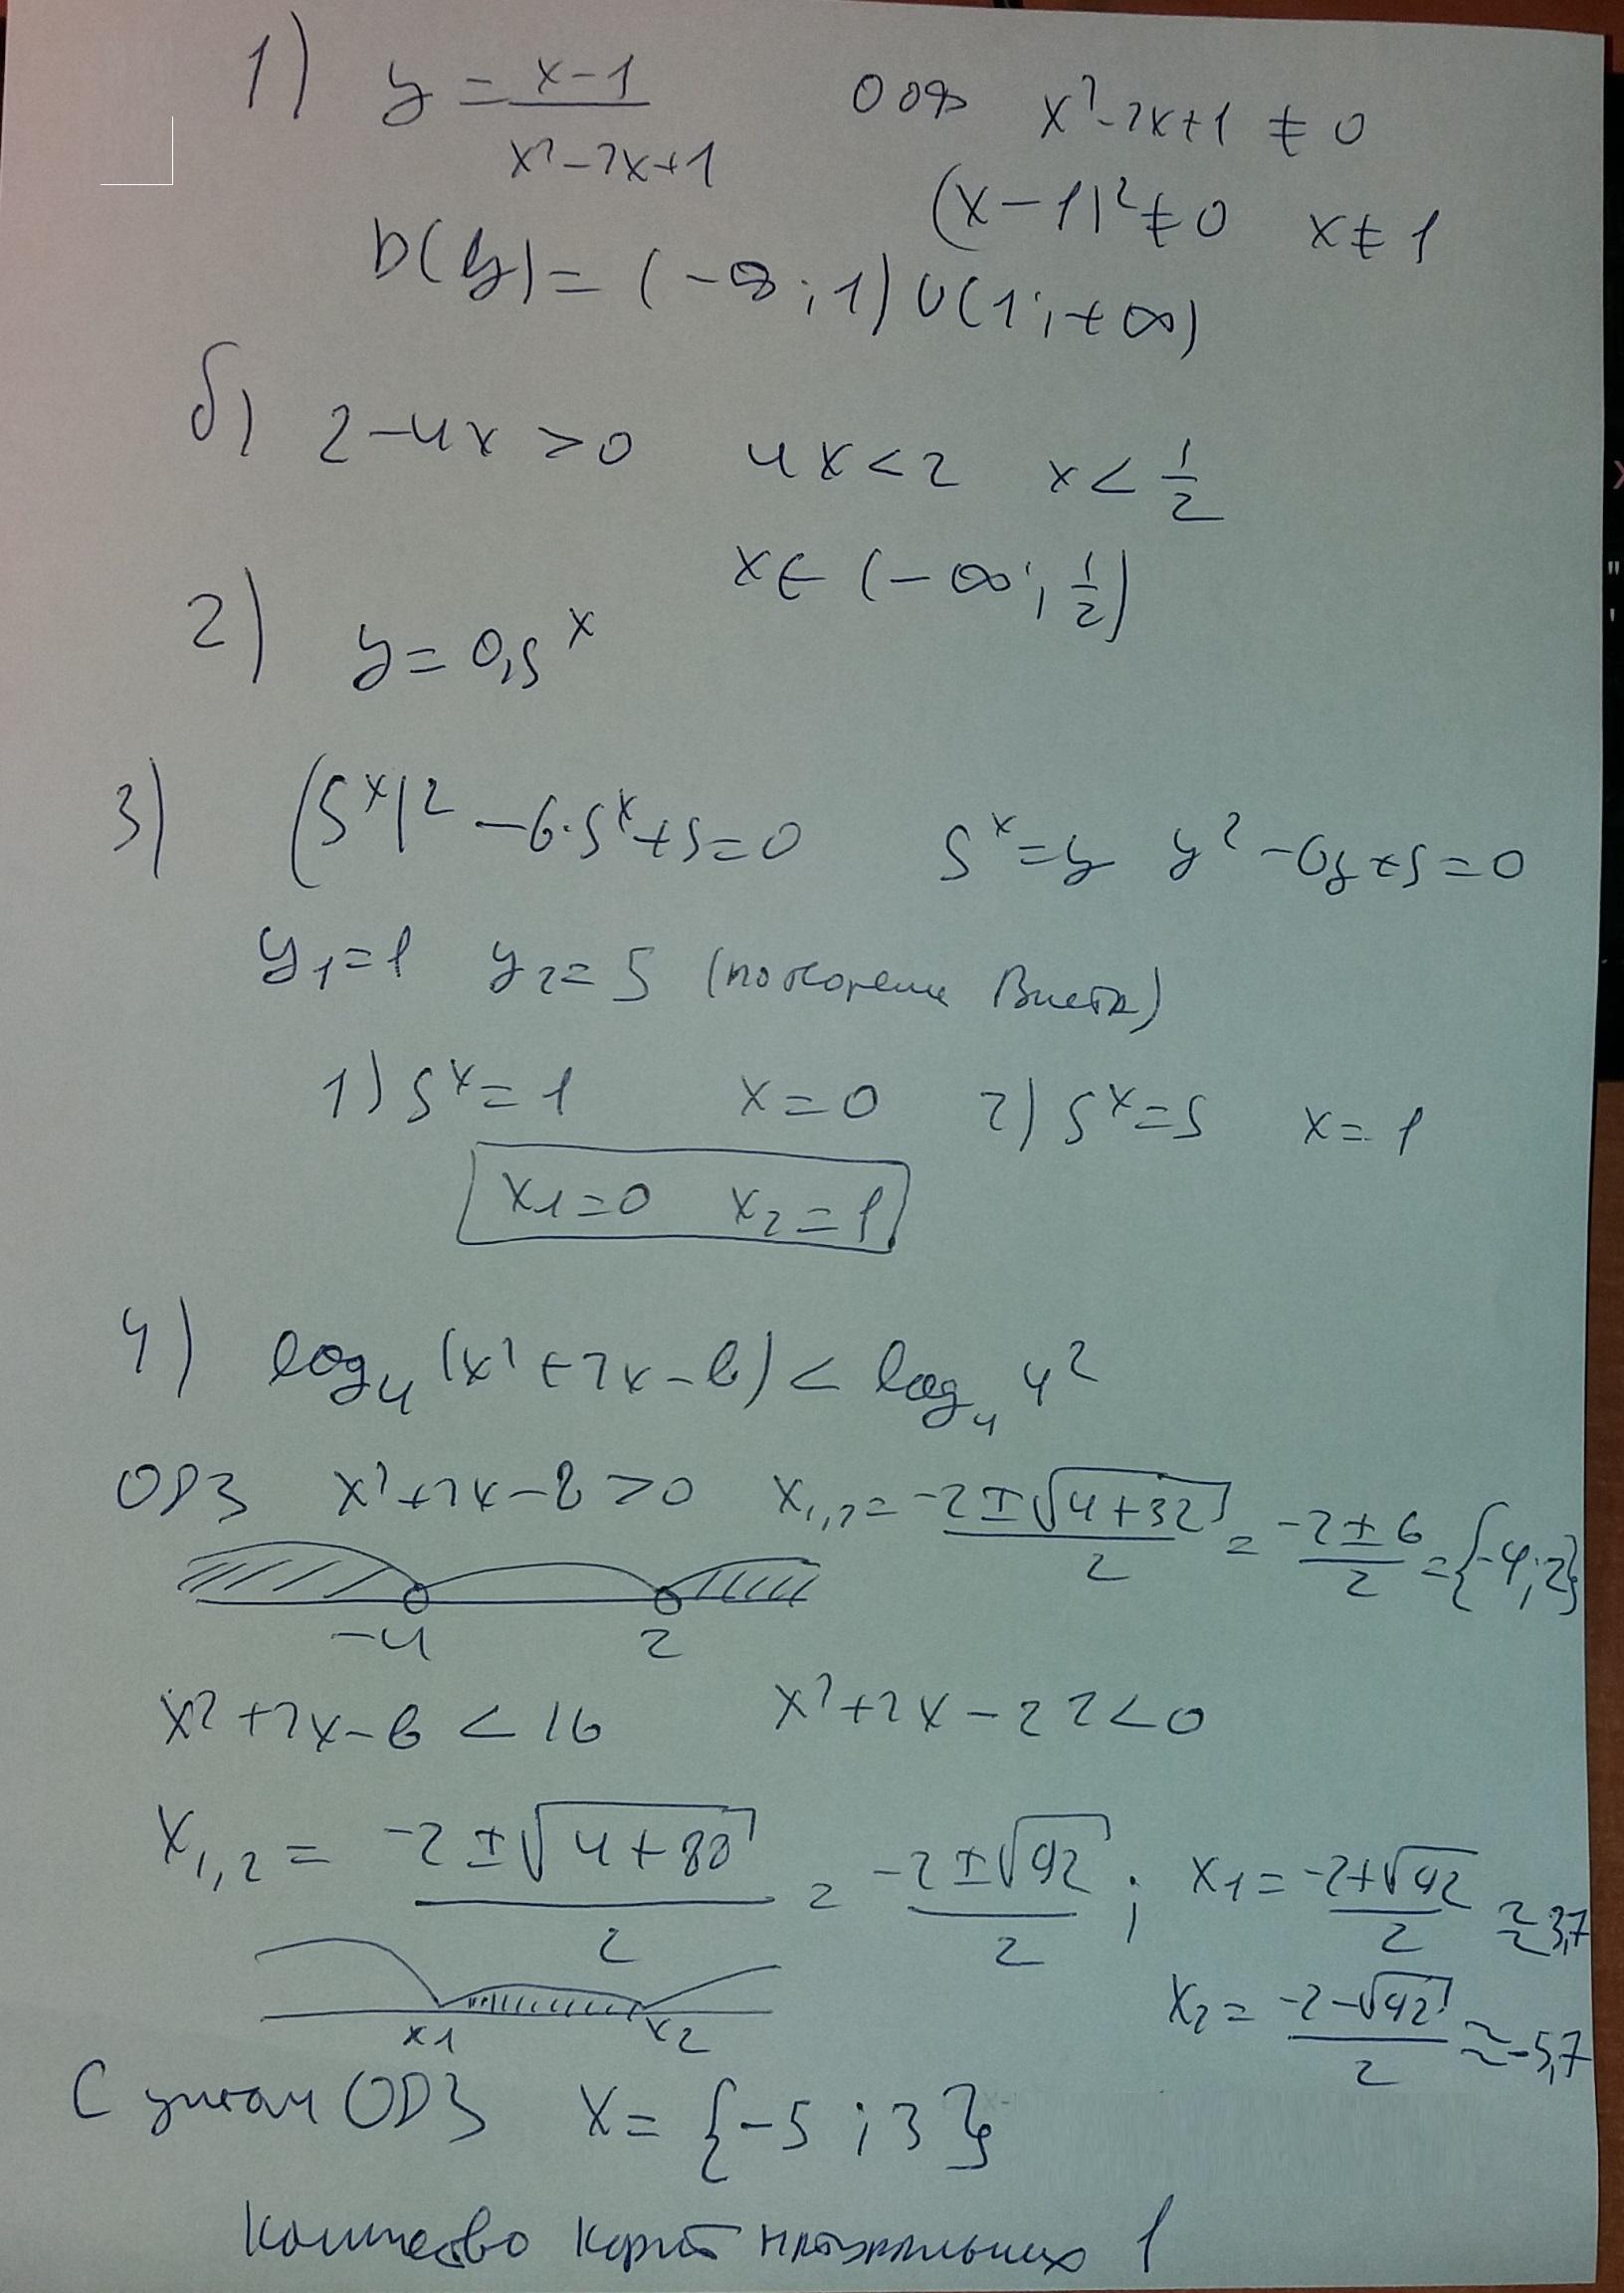 1) y = (x-1)/(x²-2x+1) ООФ x²-2x+1 ≠ 0
(x-1)² ≠ 0 x ≠ 1
D(y) = (-∞; 1) ∪ (1; +∞)
б) 2-4x > 0 4x < 2 x < 1/2
x ∈ (-∞; 1/2)
2) y = 0,5^x
3) (5^x)² - 6·5^x + 5 = 0 5^x = y y² - 6y + 5 = 0
y₁ = 1 y₂ = 5 (по теореме Виета)
1) 5^x = 1 x = 0 2) 5^x = 5 x = 1
x₁ = 0 x₂ = 1
4) log₄(x²+2x-8) < log₄ 4²
ОДЗ x²+2x-8 > 0 x₁,₂ = (-2±√(4+32))/2 = (-2±6)/2 = {-4; 2}
-4 2
x²+2x-6 < 16 x²+2x-22 < 0
x₁,₂ = (-2±√(4+88))/2 = (-2±√92)/2 ; x₁ = (-2+√92)/2 ≈ 3,7
x₂ = (-2-√92)/2 ≈ -5,7
x1 x2
С учетом ОДЗ x = {-5; 3}
Количество корней натуральных 1